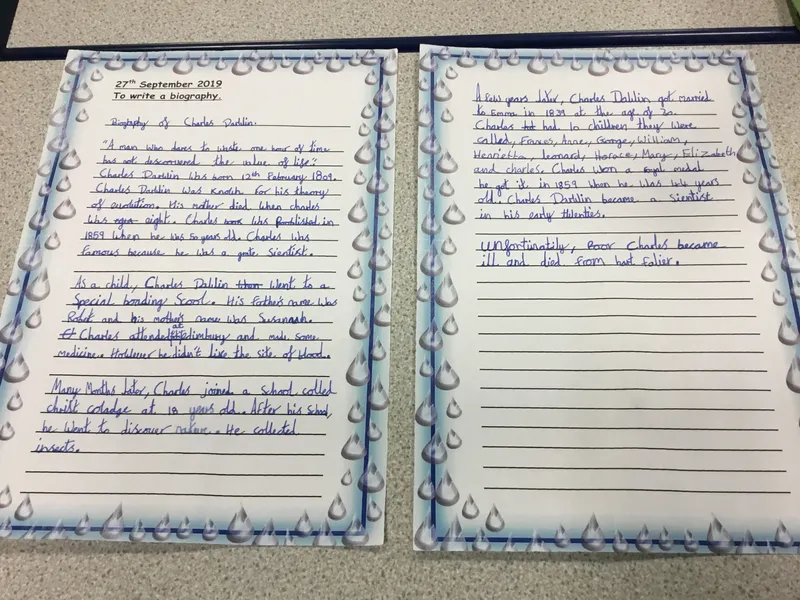 27th September 2019
To write a biography.
Biography of Charles Darwin.
"A man who dares to waste one hour of time
has not descovered the value of life".
Charles Darwin was born 12th February 1809.
Charles Darwin was known for his theory
of evolution. His mother died when charles
was eight. Charles was Published in
1859 when he was 50 years old. Charles was
famous because he was a grate scientist.
As a child, Charles Darwin went to a
special boading Scool. His father's name was
Robet and his mother's name was Susannah.
Charles attended at Edimbury and made some
medicine. However he didn't like the site of blood.
Many Months later, Charles joined a school called
christ coladge at 18 years old. After his school,
he went to discover nature. He collected
insects.
A few years later, Charles Darwin got married
to Emma in 1839 at the age of 30.
Charles had 10 children they were
called, Frances, Anne, George, William,
Henrietta, leonard, Horace, Mary, Elizabeth
and charles. Charles won a royal medal
he got it in 1859 when he was years
old. Charles Darwin became a sientist
in his early
Unfortinatily, Poor Charles became
ill and died from hart falier.